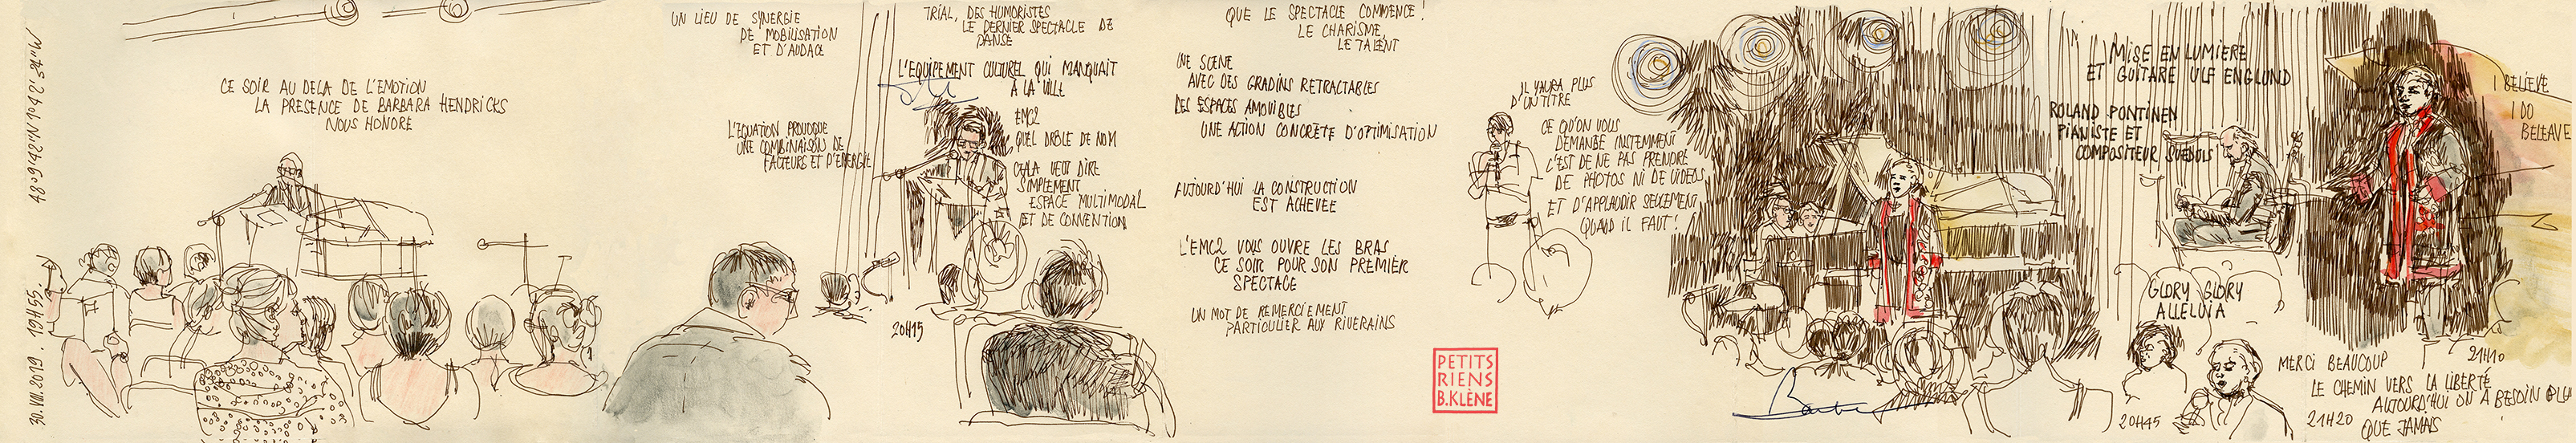 CE SOIR AU DELA DE L'EMOTION
LA PRESENCE DE BARBARA HENDRICKS
NOUS HONORE
UN LIEU DE SYNERGIE
DE MOBILISATION
ET D'AUDACE
L'EQUATION PROVOQUE
UNE COMBINAISON DE
FACTEURS ET D'ENERGIE
TRIAL, DES HUMORISTES
LE DERNIER SPECTACLE DE
DANSE
L'EQUIPEMENT CULTUREL QUI MANQUAIT
A LA VILLE
EMC2
QUEL DROLE DE NOM
CELA VEUT DIRE
SIMPLEMENT
ESPACE MULTIMODAL
ET DE CONVENTION
20H15
QUE LE SPECTACLE COMMENCE!
LE CHARISME,
LE TALENT
UNE SCENE
AVEC DES GRADINS RETRACTABLES
DES ESPACES AMOVIBLES
UNE ACTION CONCRÈTE D'OPTIMISATION
AUJOURD'HUI LA CONSTRUCTION
EST ACHEVEE
L'EMC2 VOUS OUVRE LES BRAS
CE SOIR POUR SON PREMIER
SPECTACLE
UN MOT DE REMERCIEMENT
PARTICULIER AUX RIVERAINS
PETITS
RIENS
B.KLÈNE
IL Y AURA PLUS
D'UN TITRE
CE QU'ON VOUS
DEMANDE INSTEMMENT
C'EST DE NE PAS PRENDRE
DE PHOTOS NI DE VIDEOS
ET D'APPLAUDIR SEULEMENT
QUAND IL FAUT!
MISE EN LUMIERE
ET GUITARE ULF ENGLUND
ROLAND PONTINEN
PIANISTE ET
COMPOSITEUR SUEDOIS
GLORY GLORY
ALLELUIA
20H45
I BELIEVE
I DO
BELEAVE
21H10
MERCI BEAUCOUP
LE CHEMIN VERS LA LIBERTÉ
AUJOURD'HUI ON A BESOIN PLUS
21H20 QUE JAMAIS